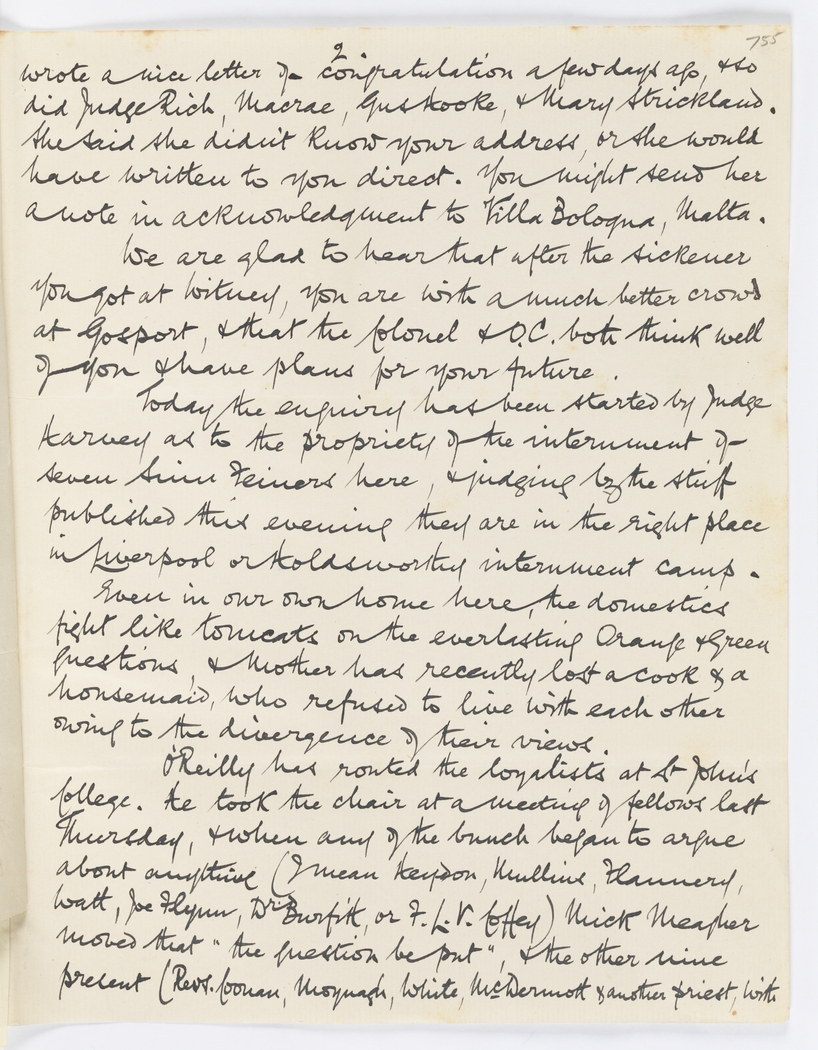 755
2
wrote a nice letter of congratulation a few days ago, & so
did Judge Rich, Macrae, Gus Hooke, & Mary Strickland.
She said she didn't know your address, or she would
have written to you direct. You might send her
a note in acknowledgment to Villa Bologna, Malta.
We are glad to hear that after the sickener
you got at Witney, you are with a much better crowd
at Gosport, & that the Colonel & O.C. both think well
of you & have plans for your future.
Today the enquiry has been started by Judge
Harvey as to the propriety of the internment of
seven Sinn Feiners here, & judging by the stuff
published this evening they are in the right place
in Liverpool or Holdsworthy internment camp.
Even in our own home here, the domestics
fight like tomcats on the everlasting Orange & Green
questions, & Mother has recently lost a cook & a
housemaid, who refused to live with each other
owing to the divergence of their views.
O'Reilly has routed the loyalists at St John's
College. He took the chair at a meeting of fellows last
Thursday, & when any of the bunch began to argue
about anything (I mean Heydon, Mullins, Flannery,
Watt, Joe Flynn, Dr Burfitt, or F.L.V. Coffey) Mick Meagher
moved that "the question be put", & the other nine
present (Revs. Coonan, Moynagh, White, McDermott & another priest, with